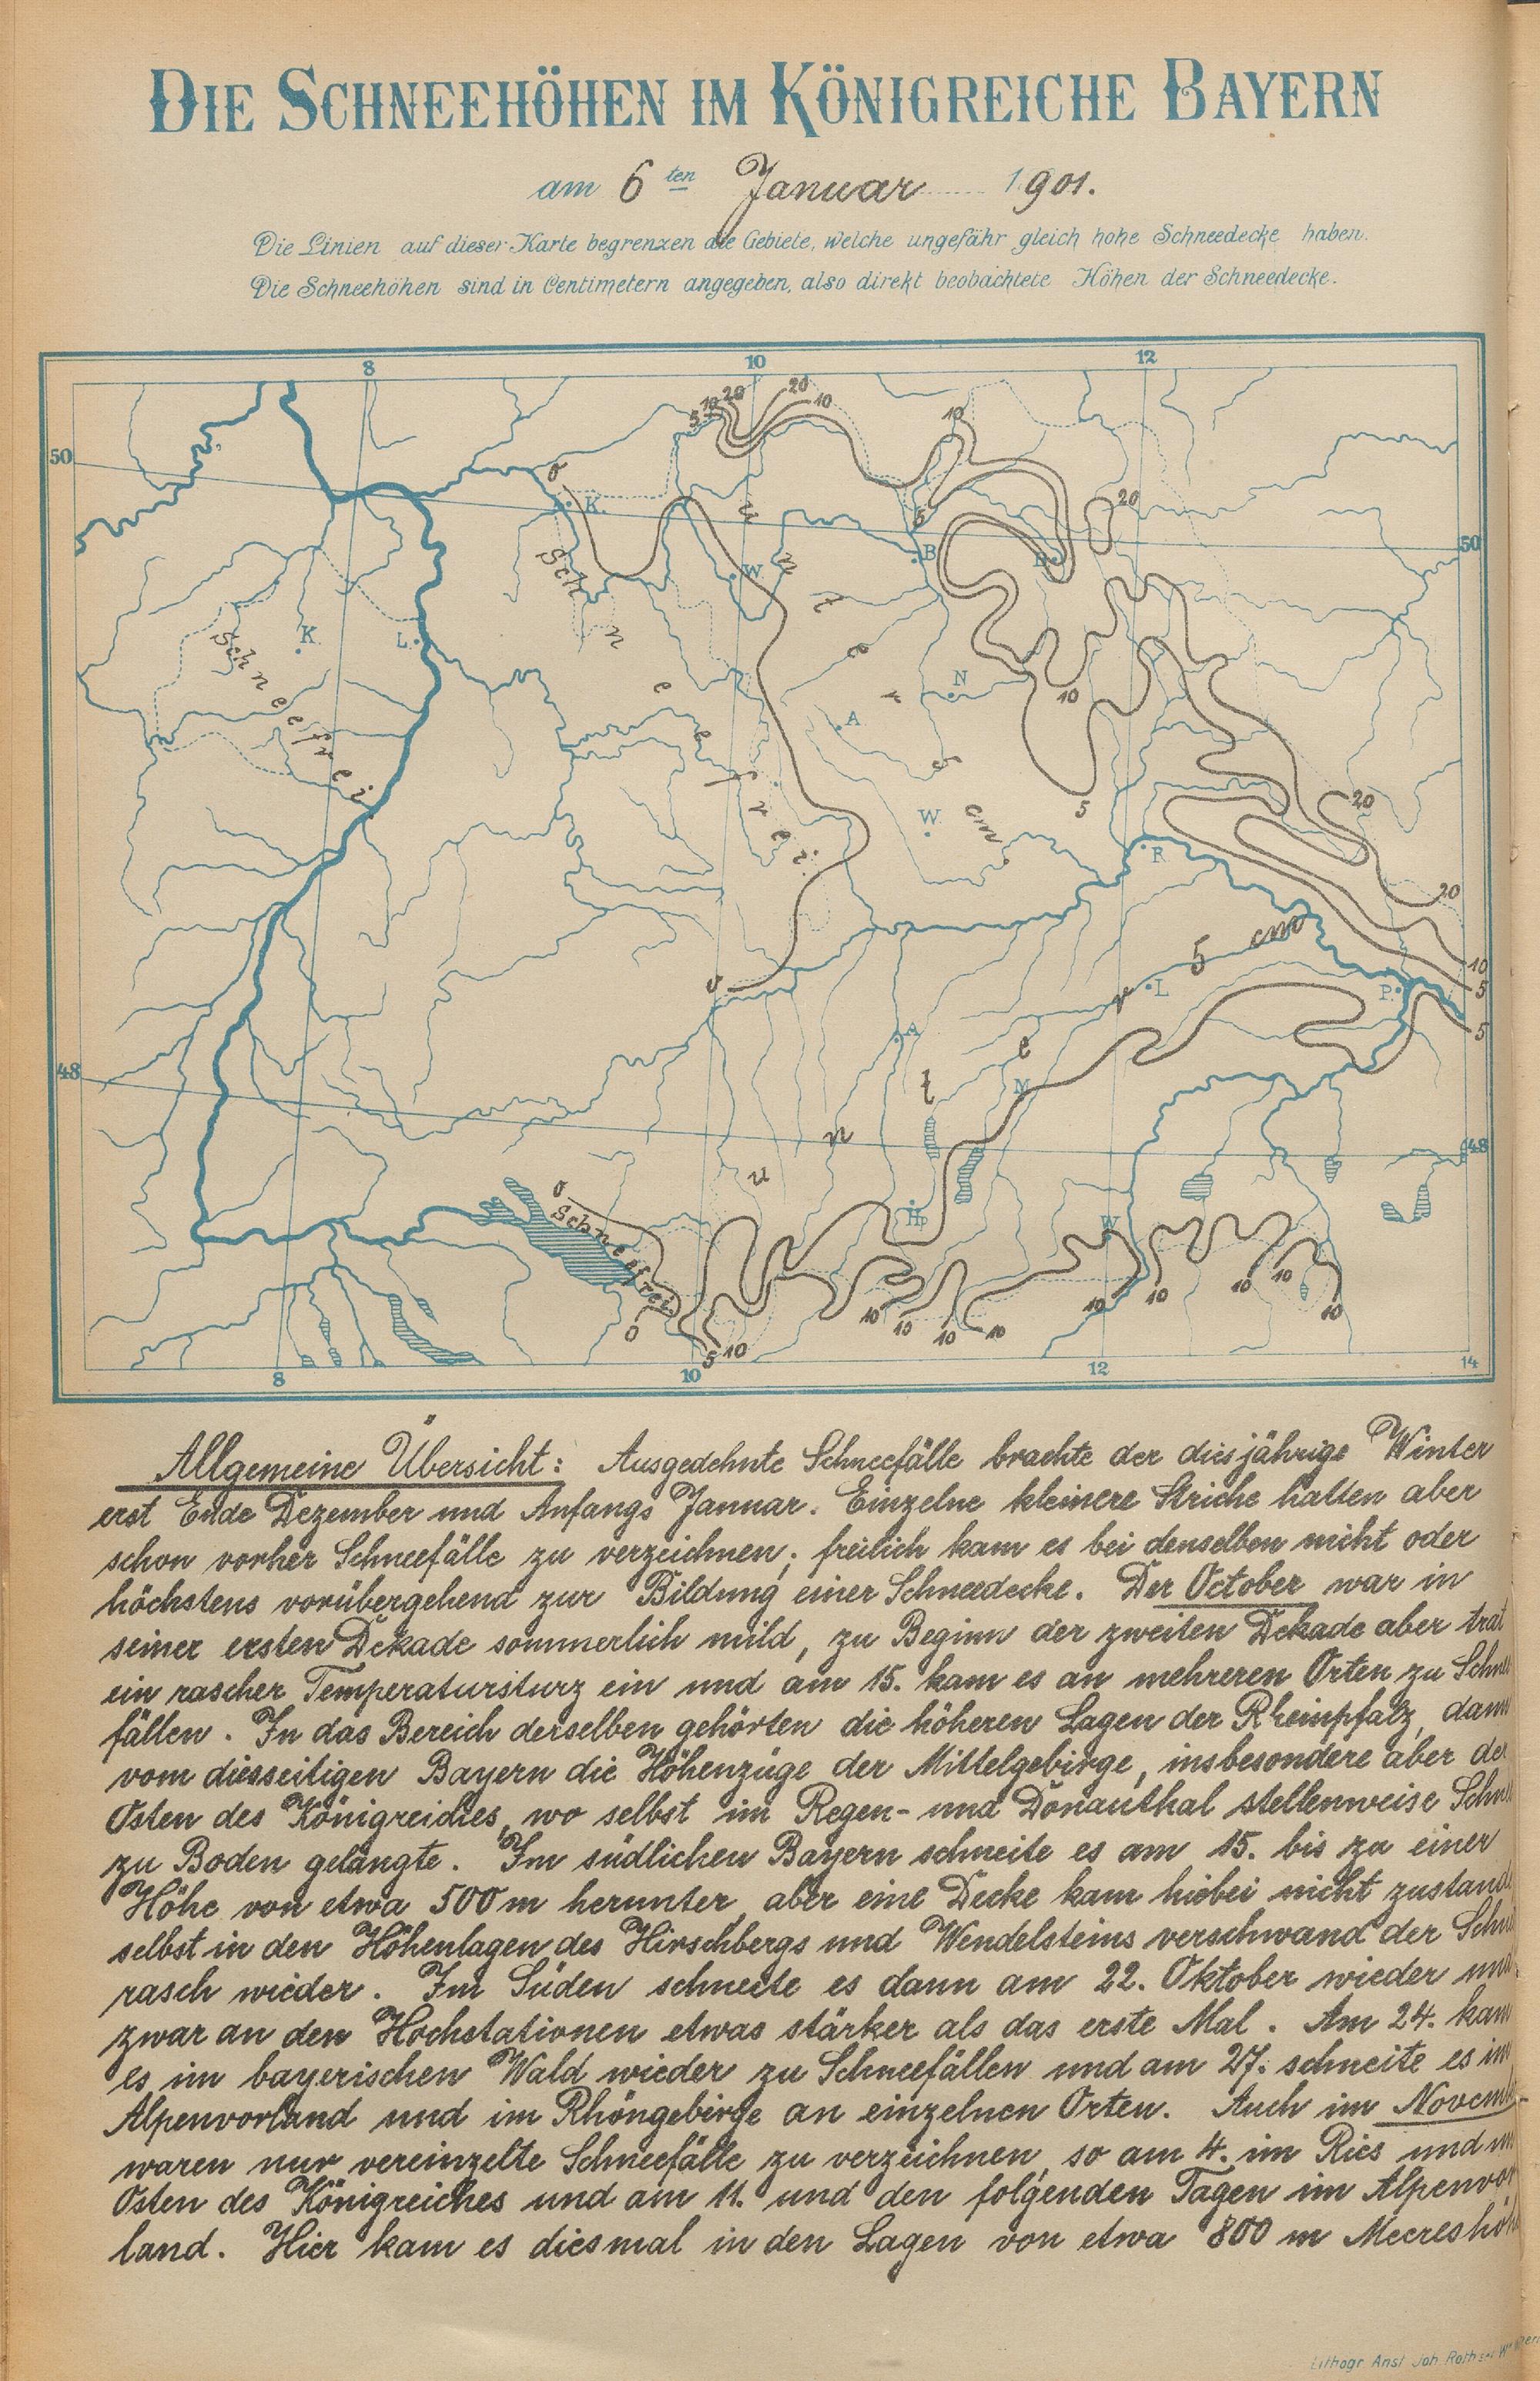 DIE SCHNEEHÖHEN IM KÖNIGREICHE BAYERN
am 6ten Januar 1901.
Die Linien auf dieser Karte begrenzen die Gebiete, welche ungefähr gleich hohe Schneedecke haben.
Die Schneehöhen sind in Centimetern angegeben, also direkt beobachtete Höhen der Schneedecke.
8 10 12
5 10 20 20 10 10
50
0 K. 20
5 B 50
W.
K. L.
Schneefrei
Schneefrei
unter 5 cm
N 10
A
5 20
W.
R.
20
unter 5 cm
0 L P. 10
5
A 5
48
M
48
0 Hp W
Schneefrei
10 10 10 10 10 10 10 10 10
0 5 10
8 10 12 14
Allgemeine Übersicht: Ausgedehnte Schneefälle brachte der diesjährige Winter
erst Ende Dezember und Anfangs Januar. Einzelne kleinere Striche hatten aber
schon vorher Schneefälle zu verzeichnen; freilich kam es bei denselben nicht oder
höchstens vorübergehend zur Bildung einer Schneedecke. Der October war in
seiner ersten Dekade sommerlich mild, zu Beginn der zweiten Dekade aber trat
ein rascher Temperatursturz ein und am 15. kam es an mehreren Orten zu Schnee
fällen. In das Bereich derselben gehörten die höheren Lagen der Rheinpfalz, dann
vom diesseitigen Bayern die Höhenzüge der Mittelgebirge, insbesondere aber der
Osten des Königreiches, wo selbst im Regen- und Donauthal stellenweise Schnee
zu Boden gelangte. Im südlichen Bayern schneite es am 15. bis zu einer
Höhe von etwa 500 m herunter, aber eine Decke kam hiebei nicht zustande
selbst in den Höhenlagen des Hirschbergs und Wendelsteins verschwand der Schnee
rasch wieder. Im Süden schneite es dann am 22. Oktober wieder und
zwar an den Hochstationen etwas stärker als das erste Mal. Am 24. kam
es im bayerischen Wald wieder zu Schneefällen und am 27. schneite es im
Alpenvorland und im Rhöngebirge an einzelnen Orten. Auch im Novemb
waren nur vereinzelte Schneefälle zu verzeichnen, so am 4. im Ries und im
Osten des Königreiches und am 11. und den folgenden Tagen im Alpenvor
land. Hier kam es diesmal in den Lagen von etwa 800 m Meereshöh
Lithogr. Anst. Joh. Roth sel. W